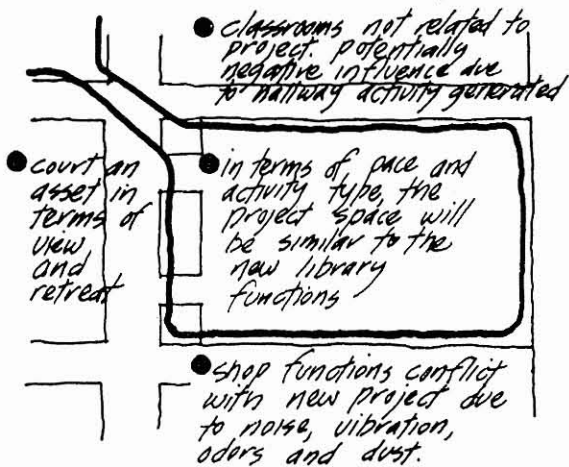 ● classrooms not related to
project. potentially
negative influence due
to hallway activity generated
● court an
asset in
terms of
view
and
retreat
● in terms of pace and
activity type, the
project space will
be similar to the
new library
functions
● shop functions conflict
with new project due
to noise, vibration,
odors and dust.